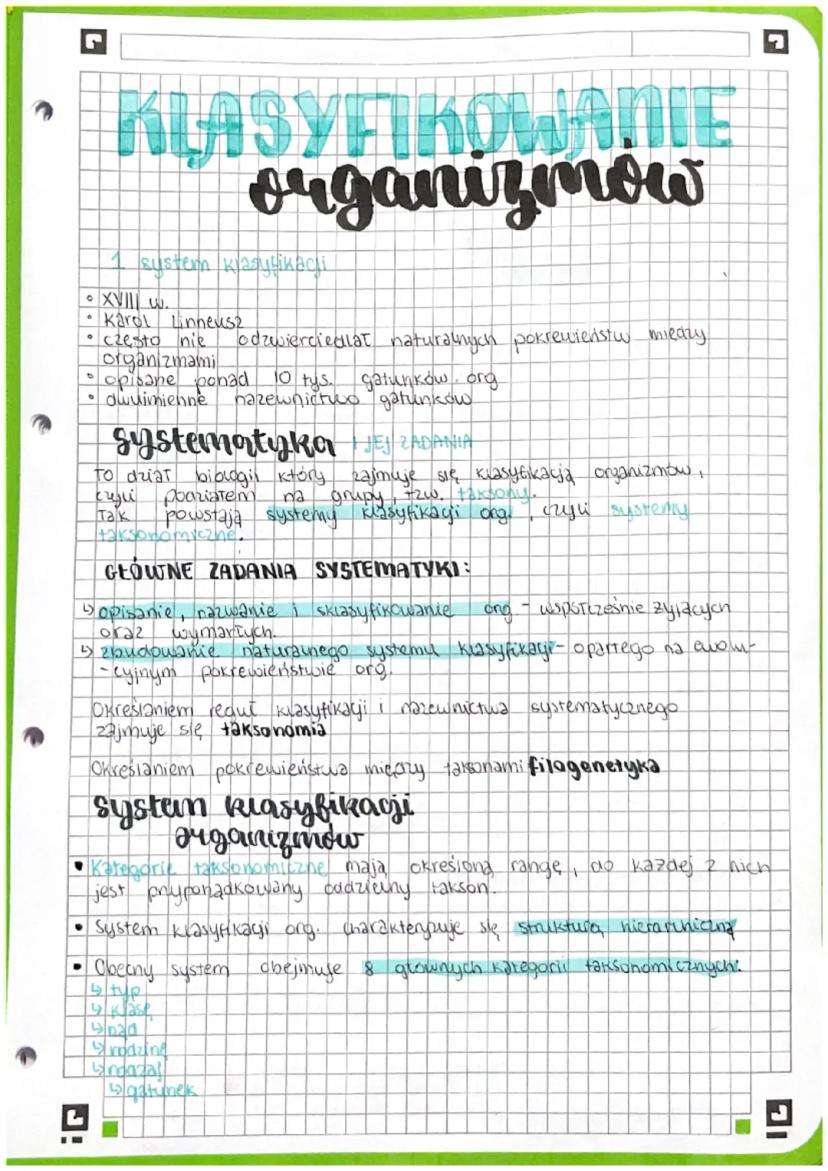 KLASYFIKOWANIE
organizmów
1 system klasyfikacji
• XVIII w.
• Karol Linneusz
• często nie odzwierciedlał naturalnych pokrewieństw między
organizmami
• opisane ponad 10 tys. gatunków org
• dwuimienne nazewnictwo gatunków
systematyka I JEJ ZADANIA
To dział biologii który zajmuje się klasyfikacją organizmów,
czyli podziałem na grupy, tzw. taksony.
Tak powstają systemy klasyfikacji org., czyli systemy
taksonomiczne.
GŁÓWNE ZADANIA SYSTEMATYKI:
↳ opisanie, nazwanie i sklasyfikowanie org - współcześnie żyjących
oraz wymarłych.
↳ zbudowanie naturalnego systemu klasyfikacji - opartego na ewolu-
-cyjnym pokrewieństwie org.
Określaniem reguł klasyfikacji i nazewnictwa systematycznego
zajmuje się taksonomia
Określaniem pokrewieństwa między taksonami filogenetyka
system klasyfikacji
organizmów
• Kategorie taksonomiczne mają określoną rangę, do każdej z nich
jest przyporządkowany oddzielny takson.
• System klasyfikacji org. charakteryzuje się strukturą hierarchiczną
• Obecny system obejmuje 8 głównych kategorii taksonomicznych:
↳ typ
↳ klasę
↳ rząd
↳ rodzinę
↳ rodzaj
↳ gatunek